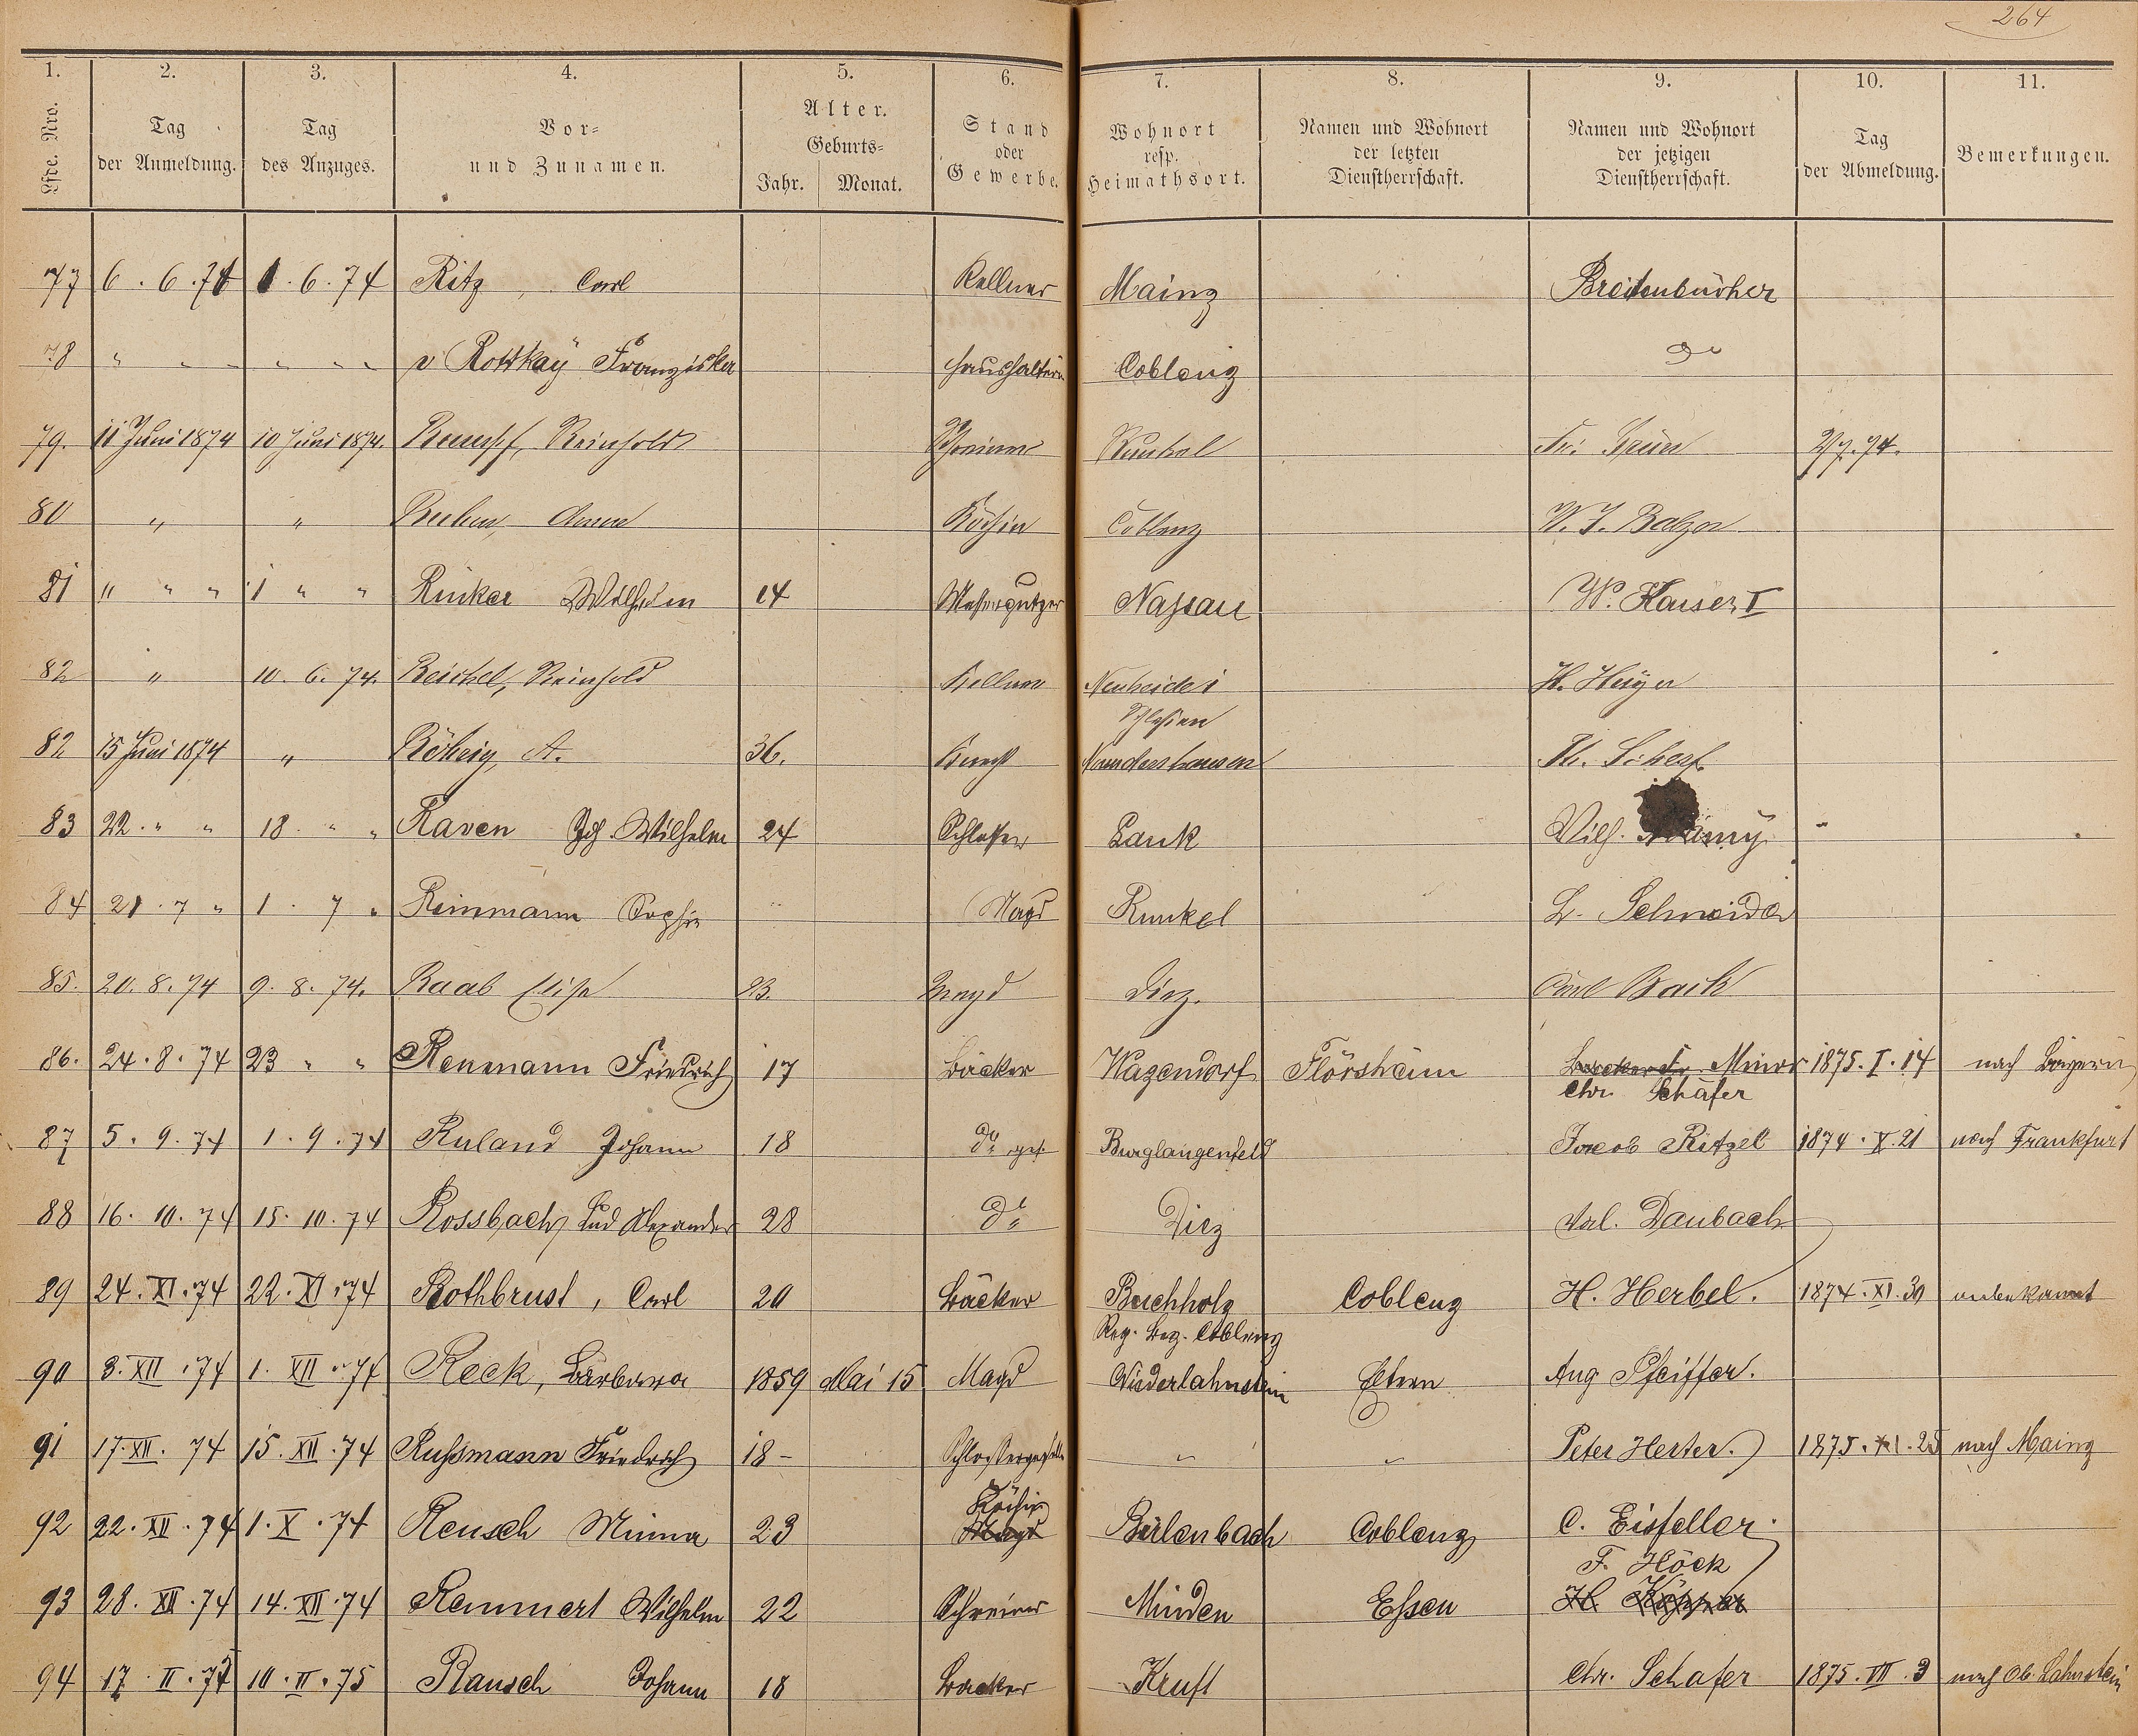 264
1. 2. 3. 4. 5. 6. 7. 8. 9. 10. 11.
Lfde. Nro. Tag der Anmeldung. Tag des Anzuges. Vor- und Zunamen. Alter. Geburts- Jahr. Monat. Stand oder Gewerbe. Wohnort resp. Heimathsort. Namen und Wohnort der letzten Dienstherrschaft. Namen und Wohnort der jetzigen Dienstherrschaft. Tag der Abmeldung. Bemerkungen.
77 6. 6. 74 1. 6. 74 Ritz, Carl Kellner Mainz Breitenbücher
78 " " " " " " v Rottkaÿ Franziska Haushälterin Coblenz do
79. 11 Juni 1874 10 Juni 1874. Reinhold Schreiner Runkel Fr. 2/7. 74.
80 " " Anna Köchin Coblenz W. J. Balzer
81 " " " 1 " " Rinker Wilhelm 14 Messerputzer Nassau W. Kaiser I
82 " 10. 6. 74. Reichel, Reinhold Kellner Neuheide i H. Heyer
Schlesien
82 15 Juni 1874 " Röhrig, A. 36. Knecht Nomdershausen
83 22. " " 18. " " Raven Joh. Wilhelm 24 Schlosser Lank Wilh.
84 21. 7 " 1. 7 " Reinmann Sophie Magd Runkel L. Schneider
85. 20. 8. 74 9. 8. 74. Raab Elise 23. Magd Diez. Carl Bach
86. 24. 8. 74 23 " " Renmann Friedrich 17 Bäcker Wazendorf Flörsheim Minor 1875. I. 14 nach Bayern
Chr. Schäfer
87 5. 9. 74 1. 9. 74 Ruland Johann 18 do ges. Burglangenfeld Jacob Ritzel 1874. X. 21 nach Frankfurt
88 16. 10. 74 15. 10. 74 Rossbach, Lud Alexander 28 do Diez Val. Daubach
89 24. XI. 74 22. XI. 74 Rothbrust, Carl 20 Bäcker Buchholz Coblenz H. Herbel. 1874. XI. 30 unbekannt
Reg. Bez. Coblenz
90 3. XII. 74 1. XII. 74 Reck, Barbara 1859 Mai 15 Magd Niederlahnstein Eltern Aug Pfeiffer.
91 17. XII. 74 15. XII. 74 Russmann Friedrich 18- Schlossergeselle " " Peter Herter. 1875. XI. 25 nach Mainz
Köchin
92 22. XII. 74 1. X. 74 Reusch Minna 23 Magd Birlenbach Coblenz C. Eisfeller.
F. Höck
93 28. XII. 74 14. XII. 74 Remmert Wilhelm 22 Schreiner Minden Essen H.
94 17. II. 75 10. II. 75 Rausch Johann 18 Bäcker Kruft Chr. Schäfer 1875. VII. 3 nach Ob. Lahnstein